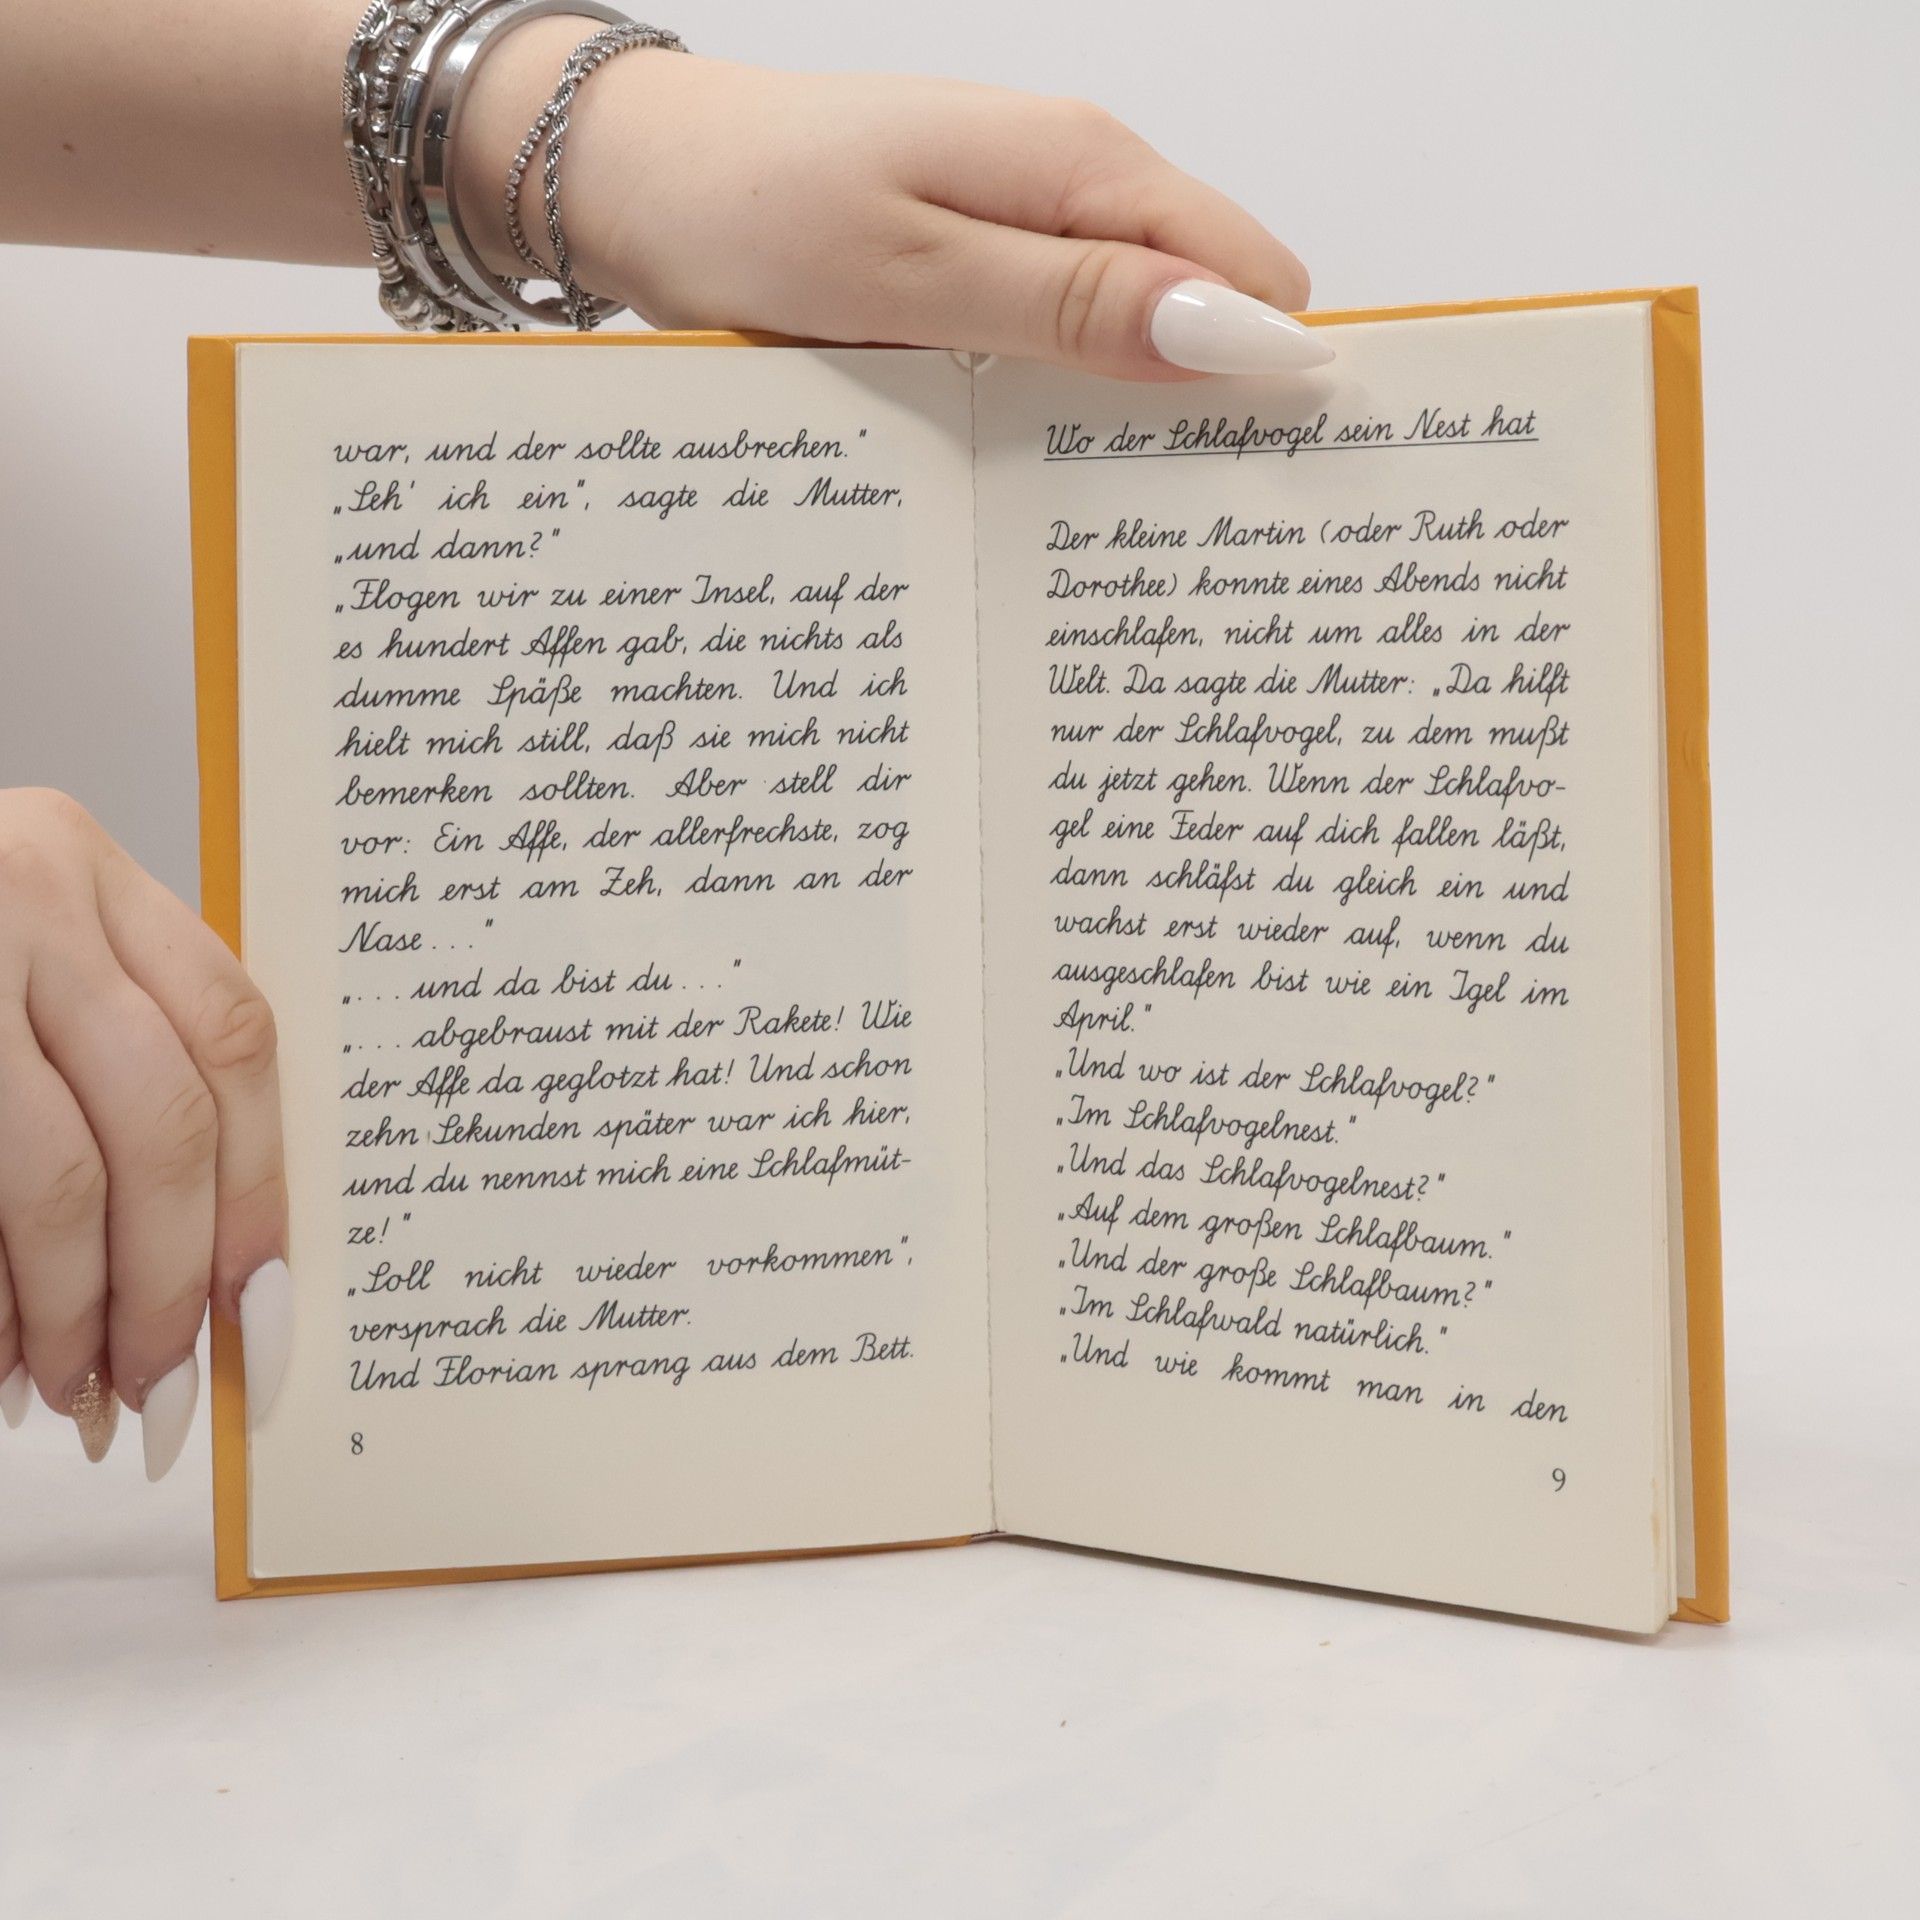 war, und der sollte ausbrechen."
„Seh' ich ein", sagte die Mutter,
„und dann?"
„Flogen wir zu einer Insel, auf der
es hundert Affen gab, die nichts als
dumme Späße machten. Und ich
hielt mich still, daß sie mich nicht
bemerken sollten. Aber stell dir
vor: Ein Affe, der allerfrechste, zog
mich erst am Zeh, dann an der
Nase..."
„... und da bist du ..."
„... abgebraust mit der Rakete! Wie
der Affe da geglotzt hat! Und schon
zehn Sekunden später war ich hier,
und du nennst mich eine Schlafmüt-
ze!"
„Soll nicht wieder vorkommen",
versprach die Mutter.
Und Florian sprang aus dem Bett.
8
Wo der Schlafvogel sein Nest hat
Der kleine Martin (oder Ruth oder
Dorothee) konnte eines Abends nicht
einschlafen, nicht um alles in der
Welt. Da sagte die Mutter: „Da hilft
nur der Schlafvogel, zu dem mußt
du jetzt gehen. Wenn der Schlafvo-
gel eine Feder auf dich fallen läßt,
dann schläfst du gleich ein und
wachst erst wieder auf, wenn du
ausgeschlafen bist wie ein Igel im
April."
„Und wo ist der Schlafvogel?"
„Im Schlafvogelnest."
„Und das Schlafvogelnest?"
„Auf dem großen Schlafbaum."
„Und der große Schlafbaum?"
„Im Schlafwald natürlich."
„Und wie kommt man in den
9